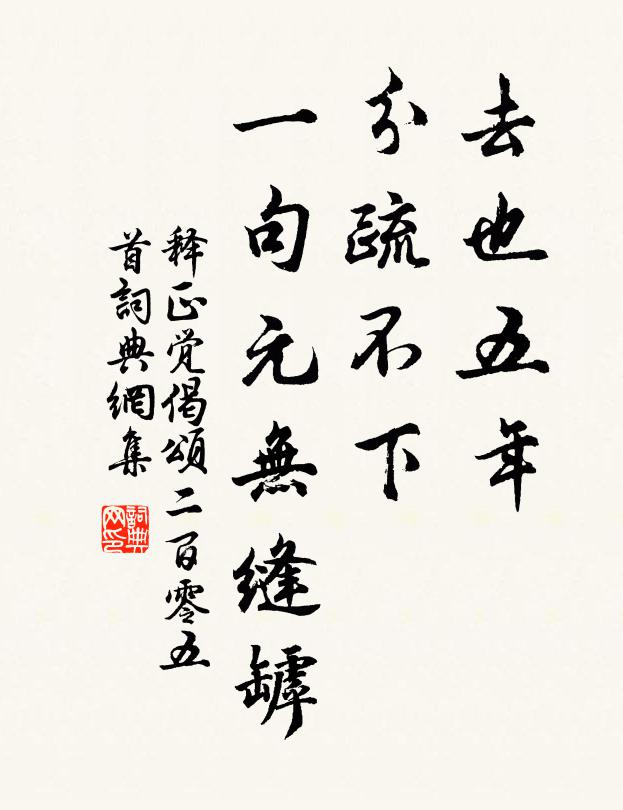 去也五年
分疏不下
一句元無縫罅
释正觉偈頌二百零五
首詞典網集
詞典
网印